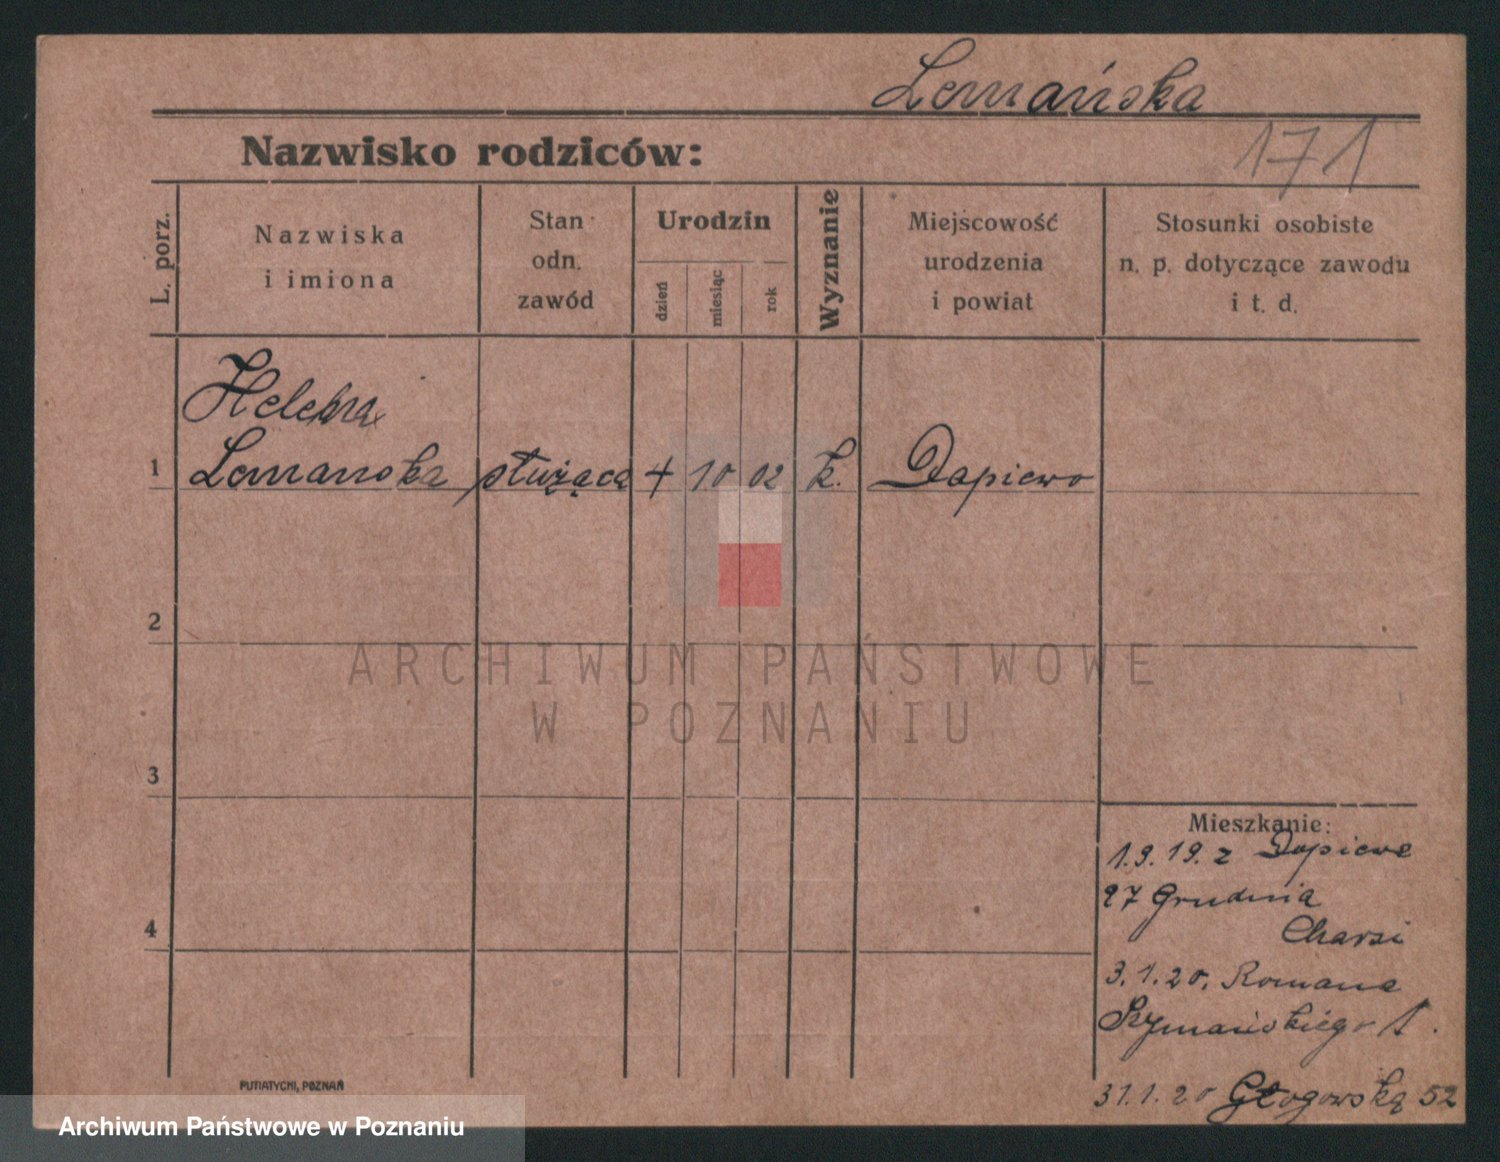 Lemańska
171
Nazwisko rodziców:
L. porz.
Nazwiska
i imiona
Stan
odn.
zawód
Urodzin
dzień
miesiąc
rok
Wyznanie
Miejscowość
urodzenia
i powiat
Stosunki osobiste
n. p. dotyczące zawodu
i t. d.
Helena
1 Lemanska służąca 4 10 02 k. Dopiewo
2
3
4
ARCHIWUM PAŃSTWOWE
W POZNANIU
Mieszkanie:
1.9.19. z Dopiewa
27 Grudnia
3.1.20. Romana
Szymańskiego 1.
31.1.20 Głogowska 52
PUTIATYCKI, POZNAŃ
Archiwum Państwowe w Poznaniu